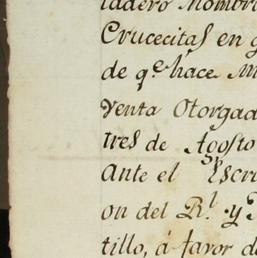 ladero Nombr
Crucecitas en q
de q.e hace m
venta Otorgad
tres de Agosto
Ante el Escri
on del R.l y
tillo, á favor de